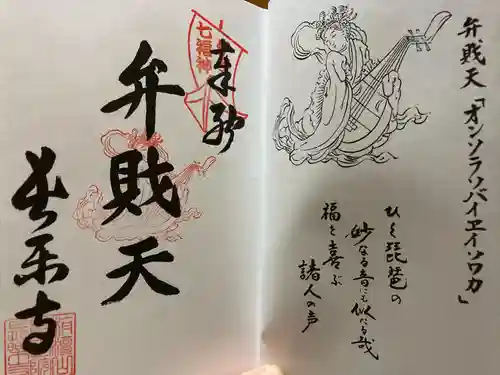 弁賎天「オンソラソバイエイソワカ」
ひく琵琶の
妙なる音にも似たる哉
福を喜ぶ
諸人の声
七福神
奉拝
弁財天
長楽寺